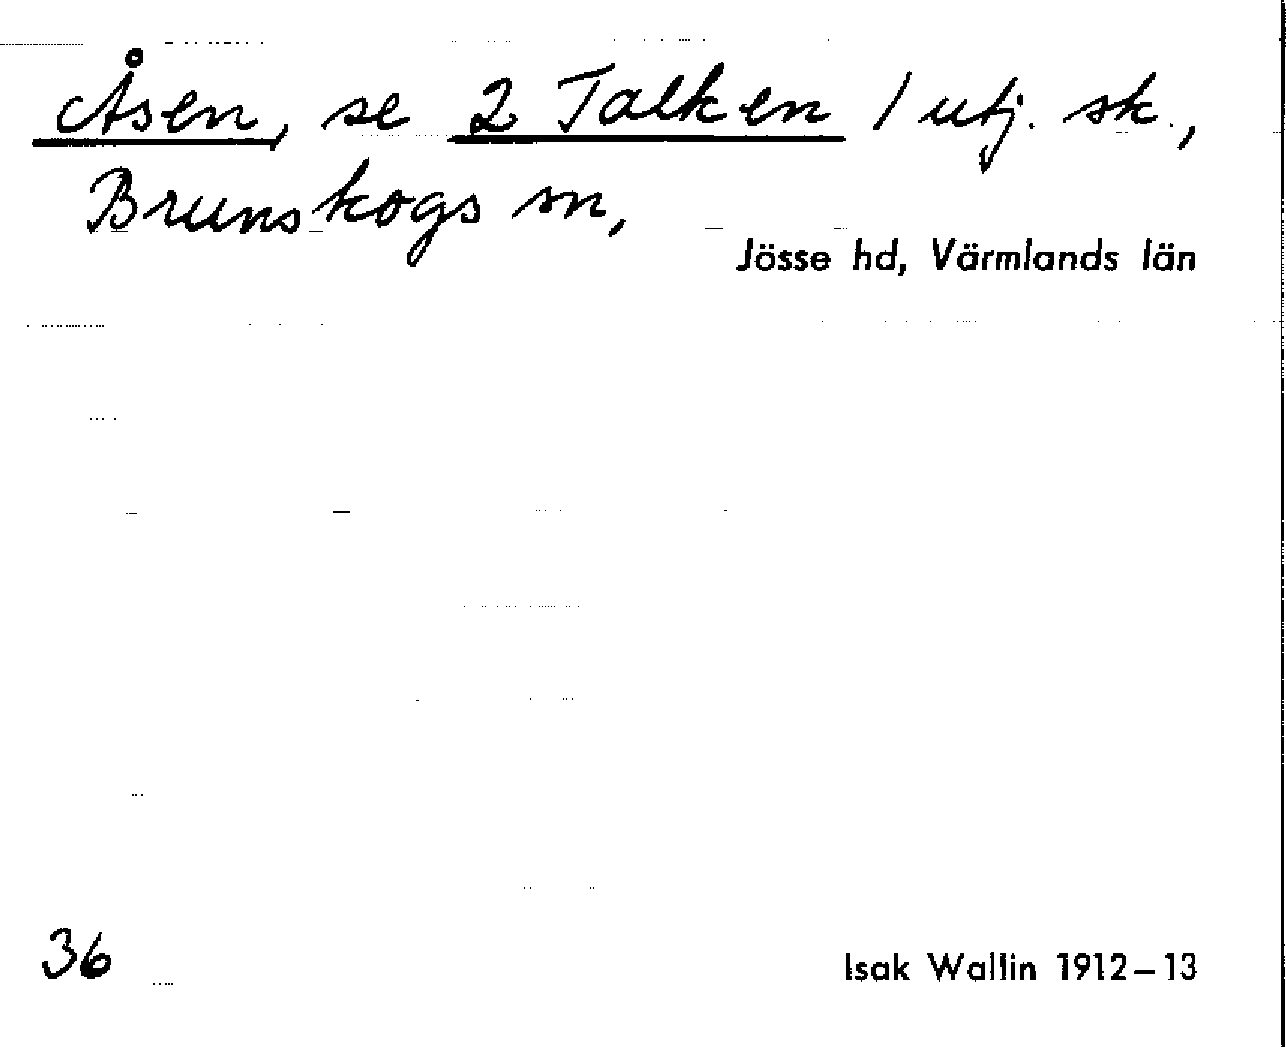 Åsen, se 2 Talken 1 utj. sk.,
Brunskogs sn,
Jösse hd, Värmlands län
36
Isak Wallin 1912–13